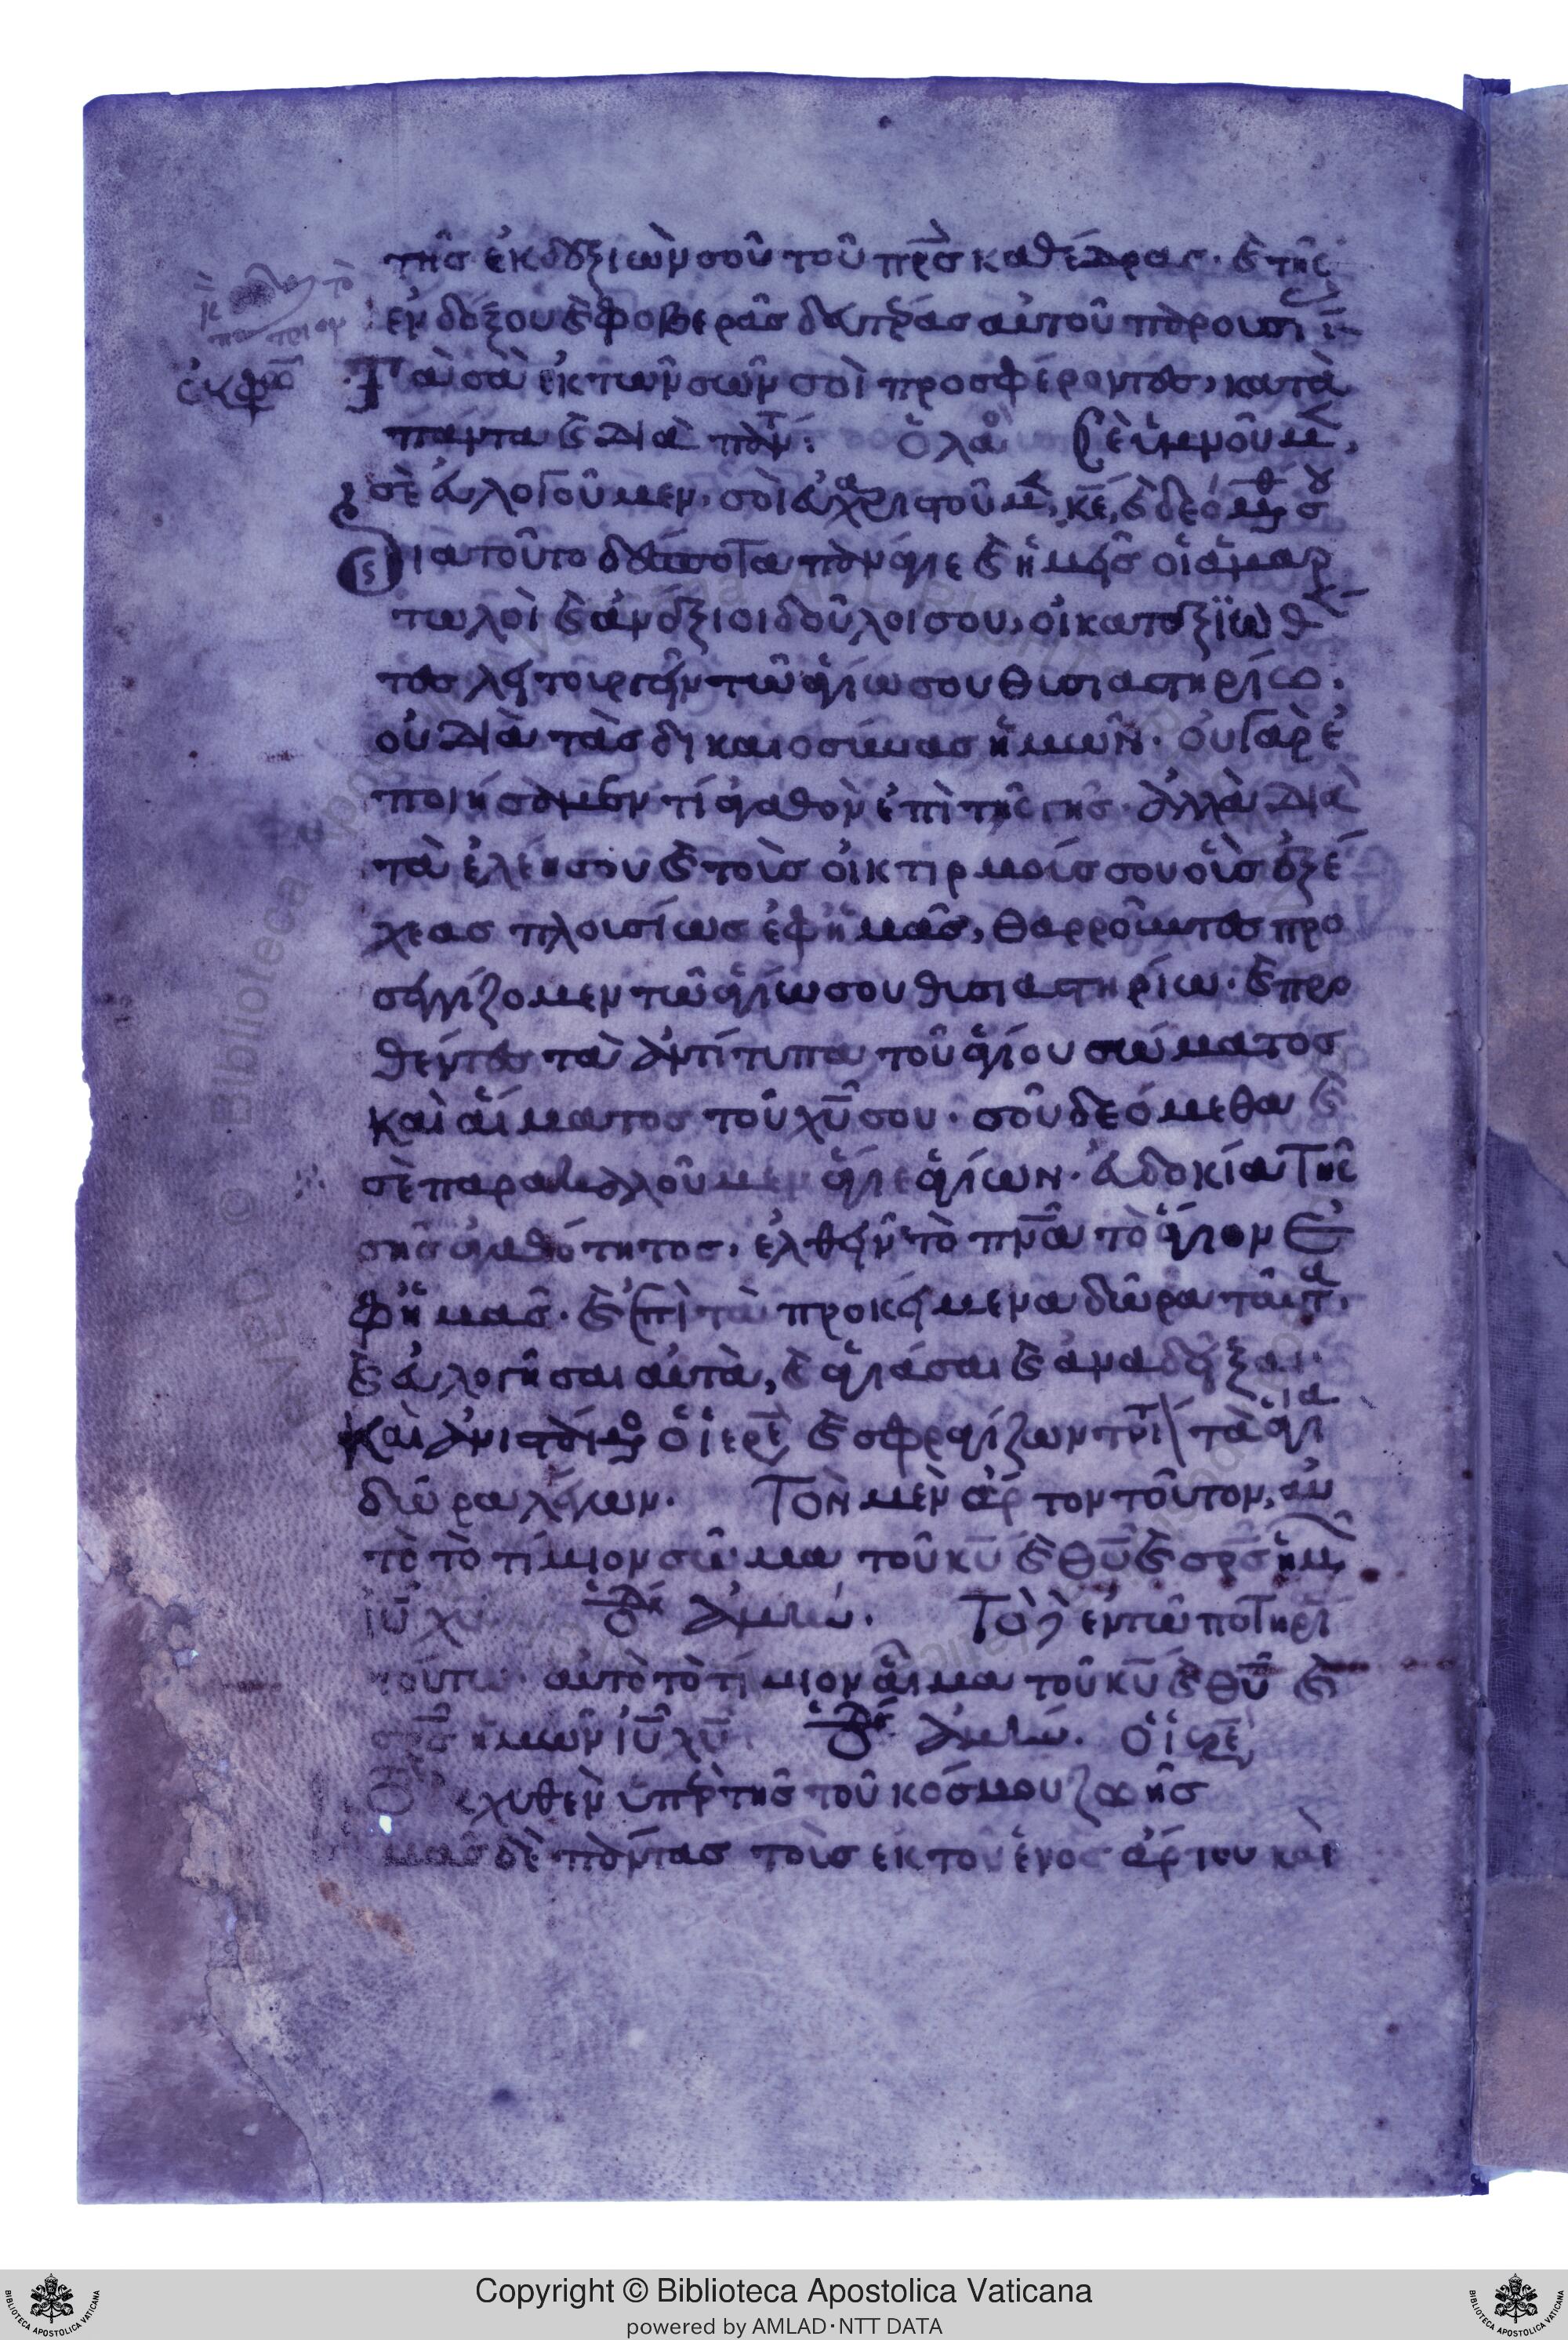 τῆς ἐκ δεξιῶν σοῦ τοῦ πρς καθέδρας· καὶ τῆς
ἐνδόξου καὶ φοβερᾶς δευτέρας αὐτοῦ παρουσί
ἐκφω
Τὰ σὰ ἐκ τῶν σῶν σοὶ προσφέροντες, κατὰ
πάντα καὶ διὰ πάντ: ὁ λαο Σὲ ὑμνοῦμε,
σὲ εὐλογοῦμεν, σοὶ εὐχαριστοῦμ, κε, καὶ δεόμεθ σου
Διατοῦτο δέσποτα πανάγιε καὶ ἡμεῖς οἱ ἁμαρ
τωλοὶ καὶ ἀνάξιοι δοῦλοι σου, οἱ καταξιωθέν
τες λειτουργεῖν τῶ ἁγίω σου θυσιαστηρίω:
οὐ διὰ τὰς δικαιοσύνας ἡμῶν· οὐ γὰρ ἐ
ποιήσαμεν τί ἀγαθὸν ἐπὶ τῆς γῆς· ἀλλὰ διὰ
τὰ ἐλέη σου καὶ τοὺς οἰκτιρμούς σου οὓς ἐξέ
χεας πλουσίως ἐφ ἡμᾶς, θαρροῦντες προ
σεγγίζομεν τῶ ἁγίω σου θυσιαστηρίω· καὶ προ
θέντες τὰ ἀντίτυπα τοῦ ἁγίου σώματος
καὶ αἵματος τοῦ χυ σου· σοῦ δεόμεθα καὶ
σὲ παρακαλοῦμεν ἅγιε ἁγίων· εὐδοκία τῆς
σῆς ἀγαθότητος, ἐλθεῖν τὸ πνα τὸ ἅγιον ἐ
φ ἡμᾶς· καὶ ἐπὶ τὰ προκείμενα δῶρα ταῦτα,
καὶ εὐλογῆσαι αὐτὰ, καὶ ἁγιάσαι καὶ ἀναδεῖξαι·
Καὶ ἀνιστάμενος ὁ ἱερεὺς καὶ σφραγίζων τὰ ἅγια
δῶρα λέγων· Τὸν μὲν ἄρτον τοῦτον, αὐ
τὸ τὸ τίμιον σῶμα τοῦ κυ καὶ θυ καὶ σρς ἡμῶν
ιυ χυ ἀμήν. Τὸ δὲ ἐν τῶ ποτηρί
τούτω· αὐτὸ τὸ τίμιον αἷμα τοῦ κυ καὶ θυ καὶ
σρς ἡμῶν ιυ χυ ἀμήν. ὁ ἱερε
χυθὲν ὑπὲρ τῆς τοῦ κόσμου ζωῆς
μᾶς δὲ πάντας τοὺς ἐκ τοῦ ἑνὸς ἄρτου καὶ
Copyright © Biblioteca Apostolica Vaticana
powered by AMLAD·NTT DATA